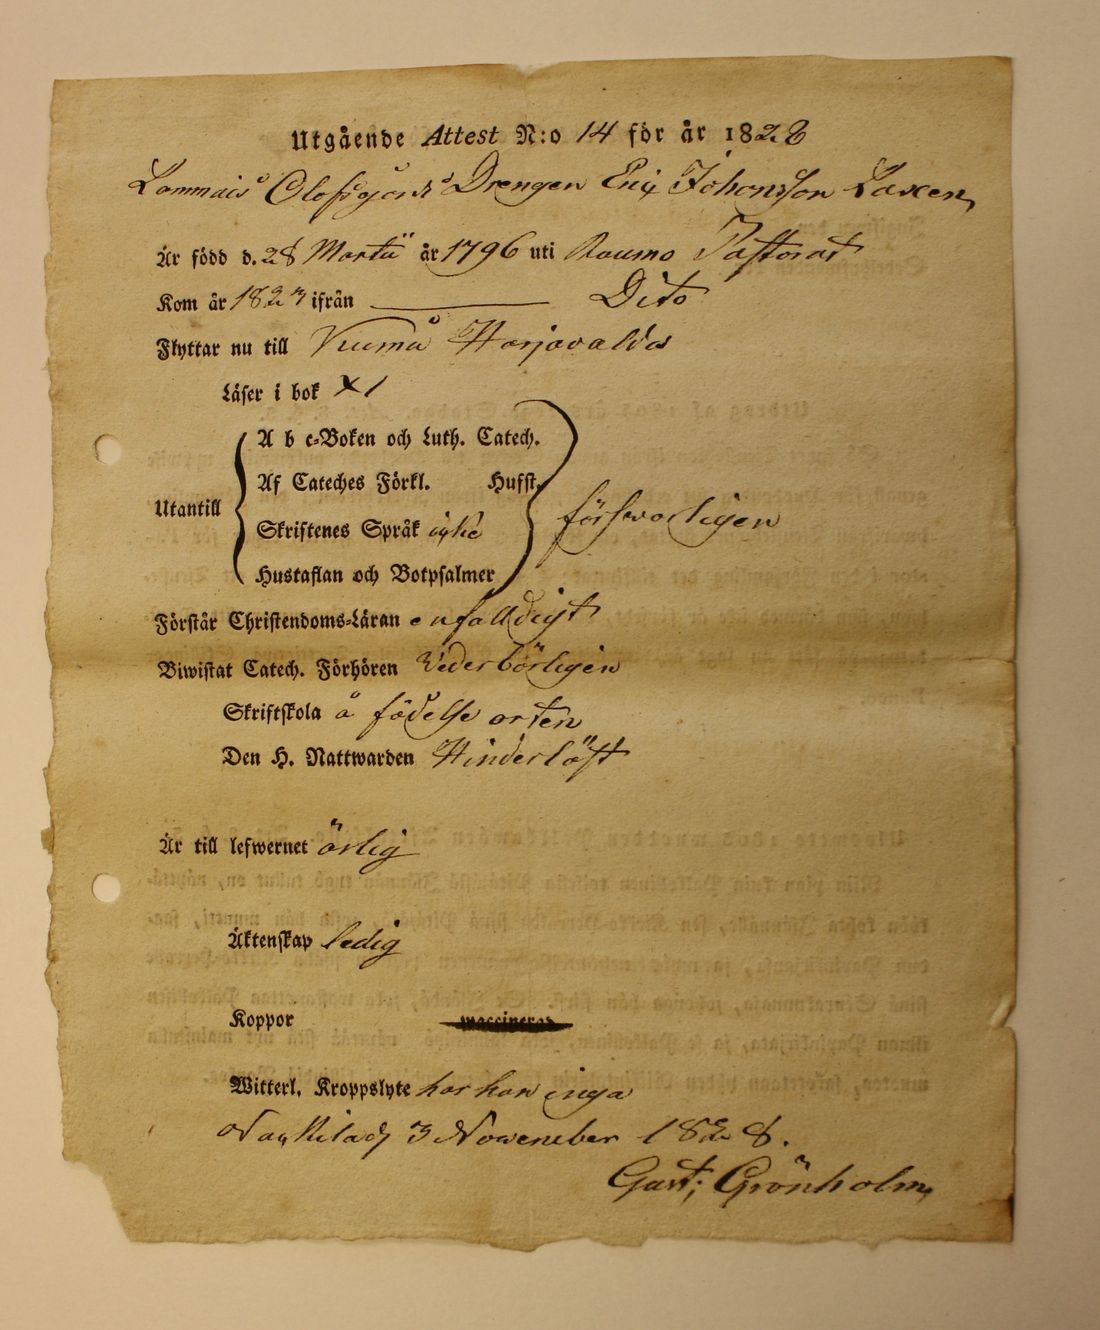 Utgående Attest N:o 14 för år 1828
Lammais Olofsgårds Drengen Eric Johansson Laxen,
Är född d. 28 Martii år 1796 uti Raumo Pastorat
Kom år 1823 ifrån Dito
Flyttar nu till Harjavalda
Läser i bok X1
Utantill
A b c-Boken och Luth. Catech.
Af Cateches Förkl. Husst.
Skriftenes Språk icke
Hustaflan och Botpsalmer
försvarligen
Förstår Christendoms-Läran enfalldigt
Biwistat Catech. Förhören Vederbörligen
Skriftskola å födelse orten
Den H. Nattwarden Hinderlöst
Är till lefwernet ärlig
Äktenskap ledig
Koppor waccinerad
Witterl. Kroppslyte har han inga
Nackila d 3 November 1828.
Gust; Grönholm,